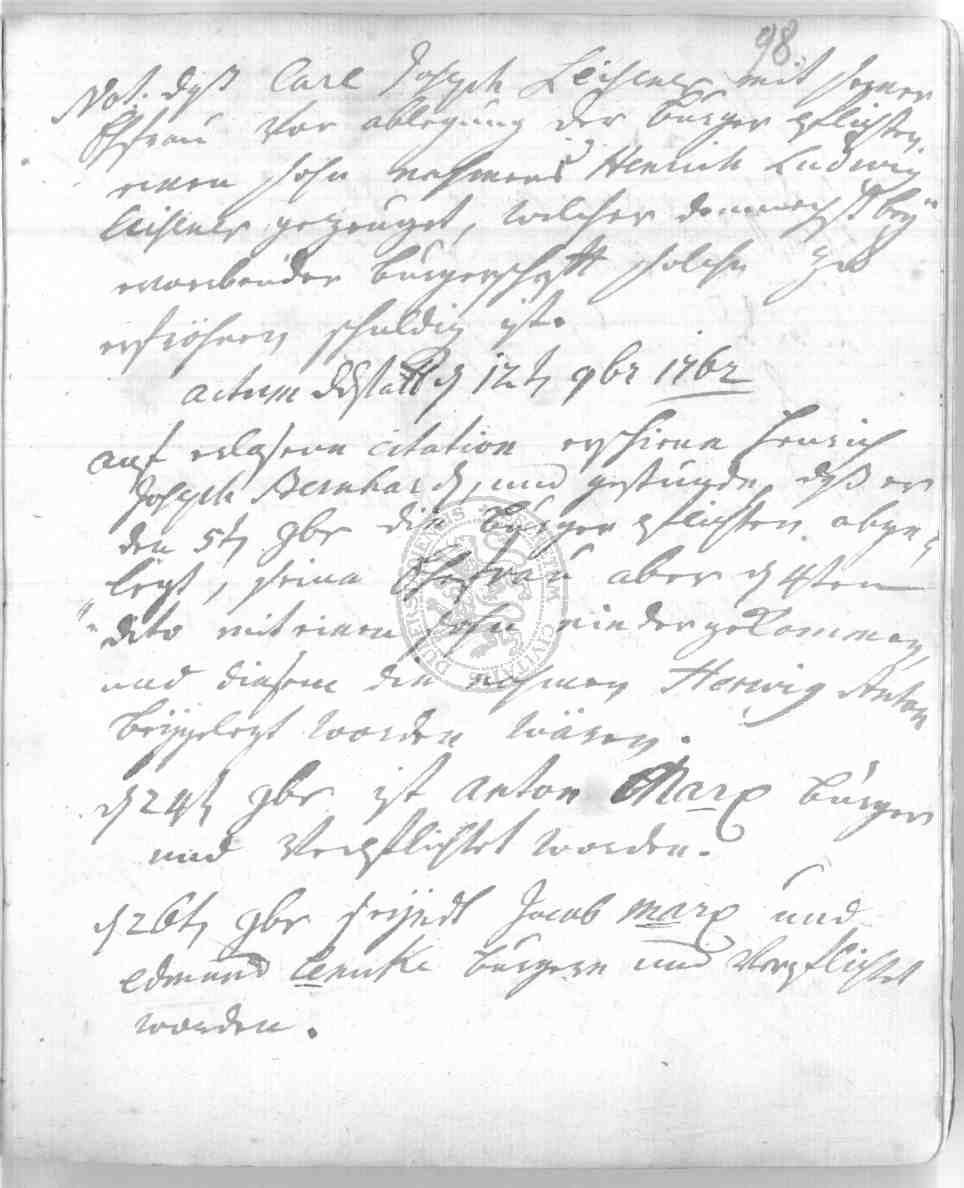 98
Not. daß Carl Joseph Leistner mit seyner
Ehfrau vor ablegung der burger pflichten
einen sohn nahmens Henrich Ludwig
Leistner gezeuget, welcher demnach
burgerschafft solche zu
schuldig ist.
actum d 12t 9br 1762
auf erlasene citation erschiene Henrich
Joseph Bernhard, und gestunde, daß er
den 5t 9br die burger pflichten abge-
legt, seine Ehefrau aber d 4ten
dito mit einen sohn niedergekommen,
und diesem die nahmen Herwig Anton
beygelegt worden wären.
d 24t 9br ist Anton Marx burger
und verpflichtet worden.
d 26t 9br seyndt Jacob Marx und
edmund Lemke burgere und verpflichtet
worden.